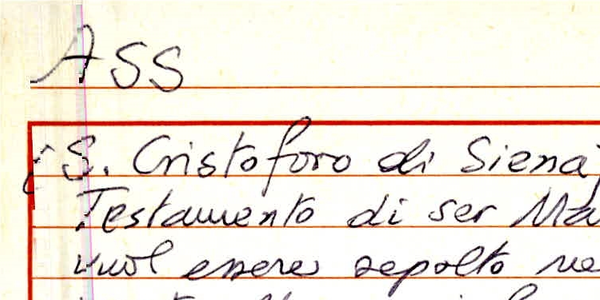 ASS
S. Cristoforo di Siena
Testamento di ser Ma
vuol essere sepolto ne